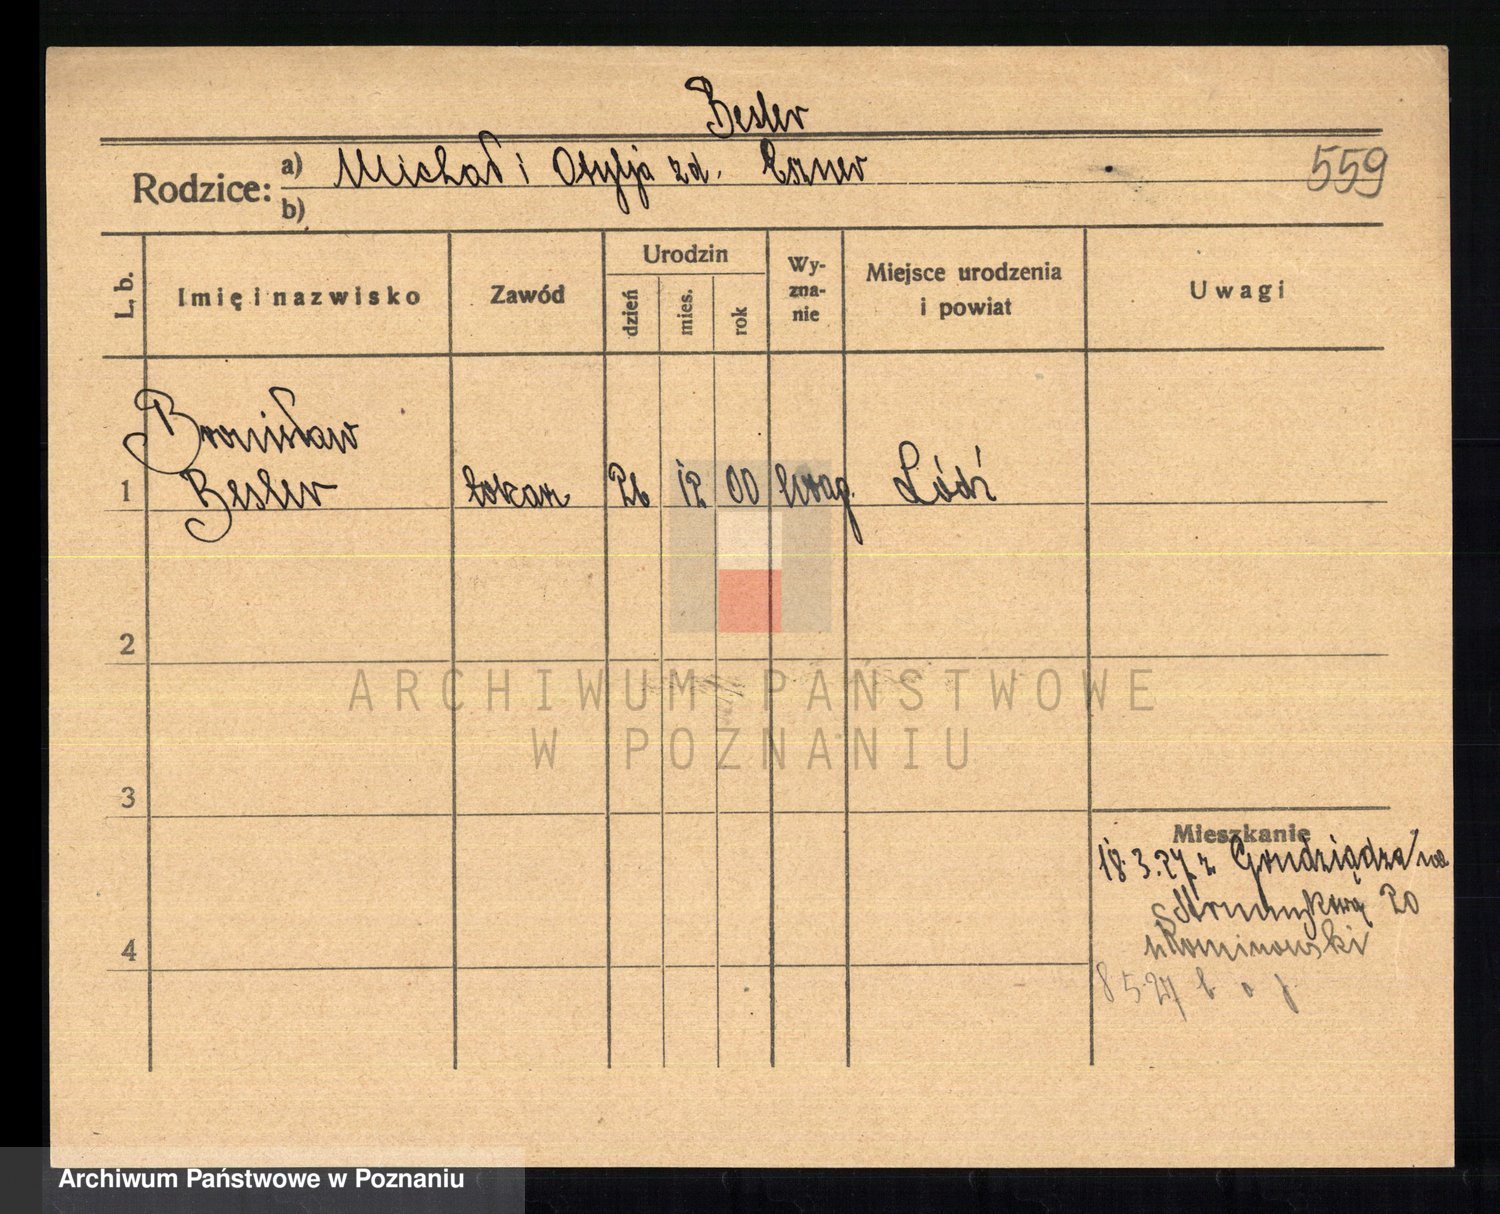 Besler
Rodzice: a) Michał i Otylja zd.
b)
559
L. b.
Imię i nazwisko
Zawód
Urodzin
dzień
mies.
rok
Wy-
zna-
nie
Miejsce urodzenia
i powiat
Uwagi
Bronisław
1 Besler tokarz 26 12 00 ewag. Łódź
2
ARCHIWUM PAŃSTWOWE
W POZNANIU
3
Mieszkanie
18.3.27 z Grudziądza/na
20
4
8 5 27
Archiwum Państwowe w Poznaniu